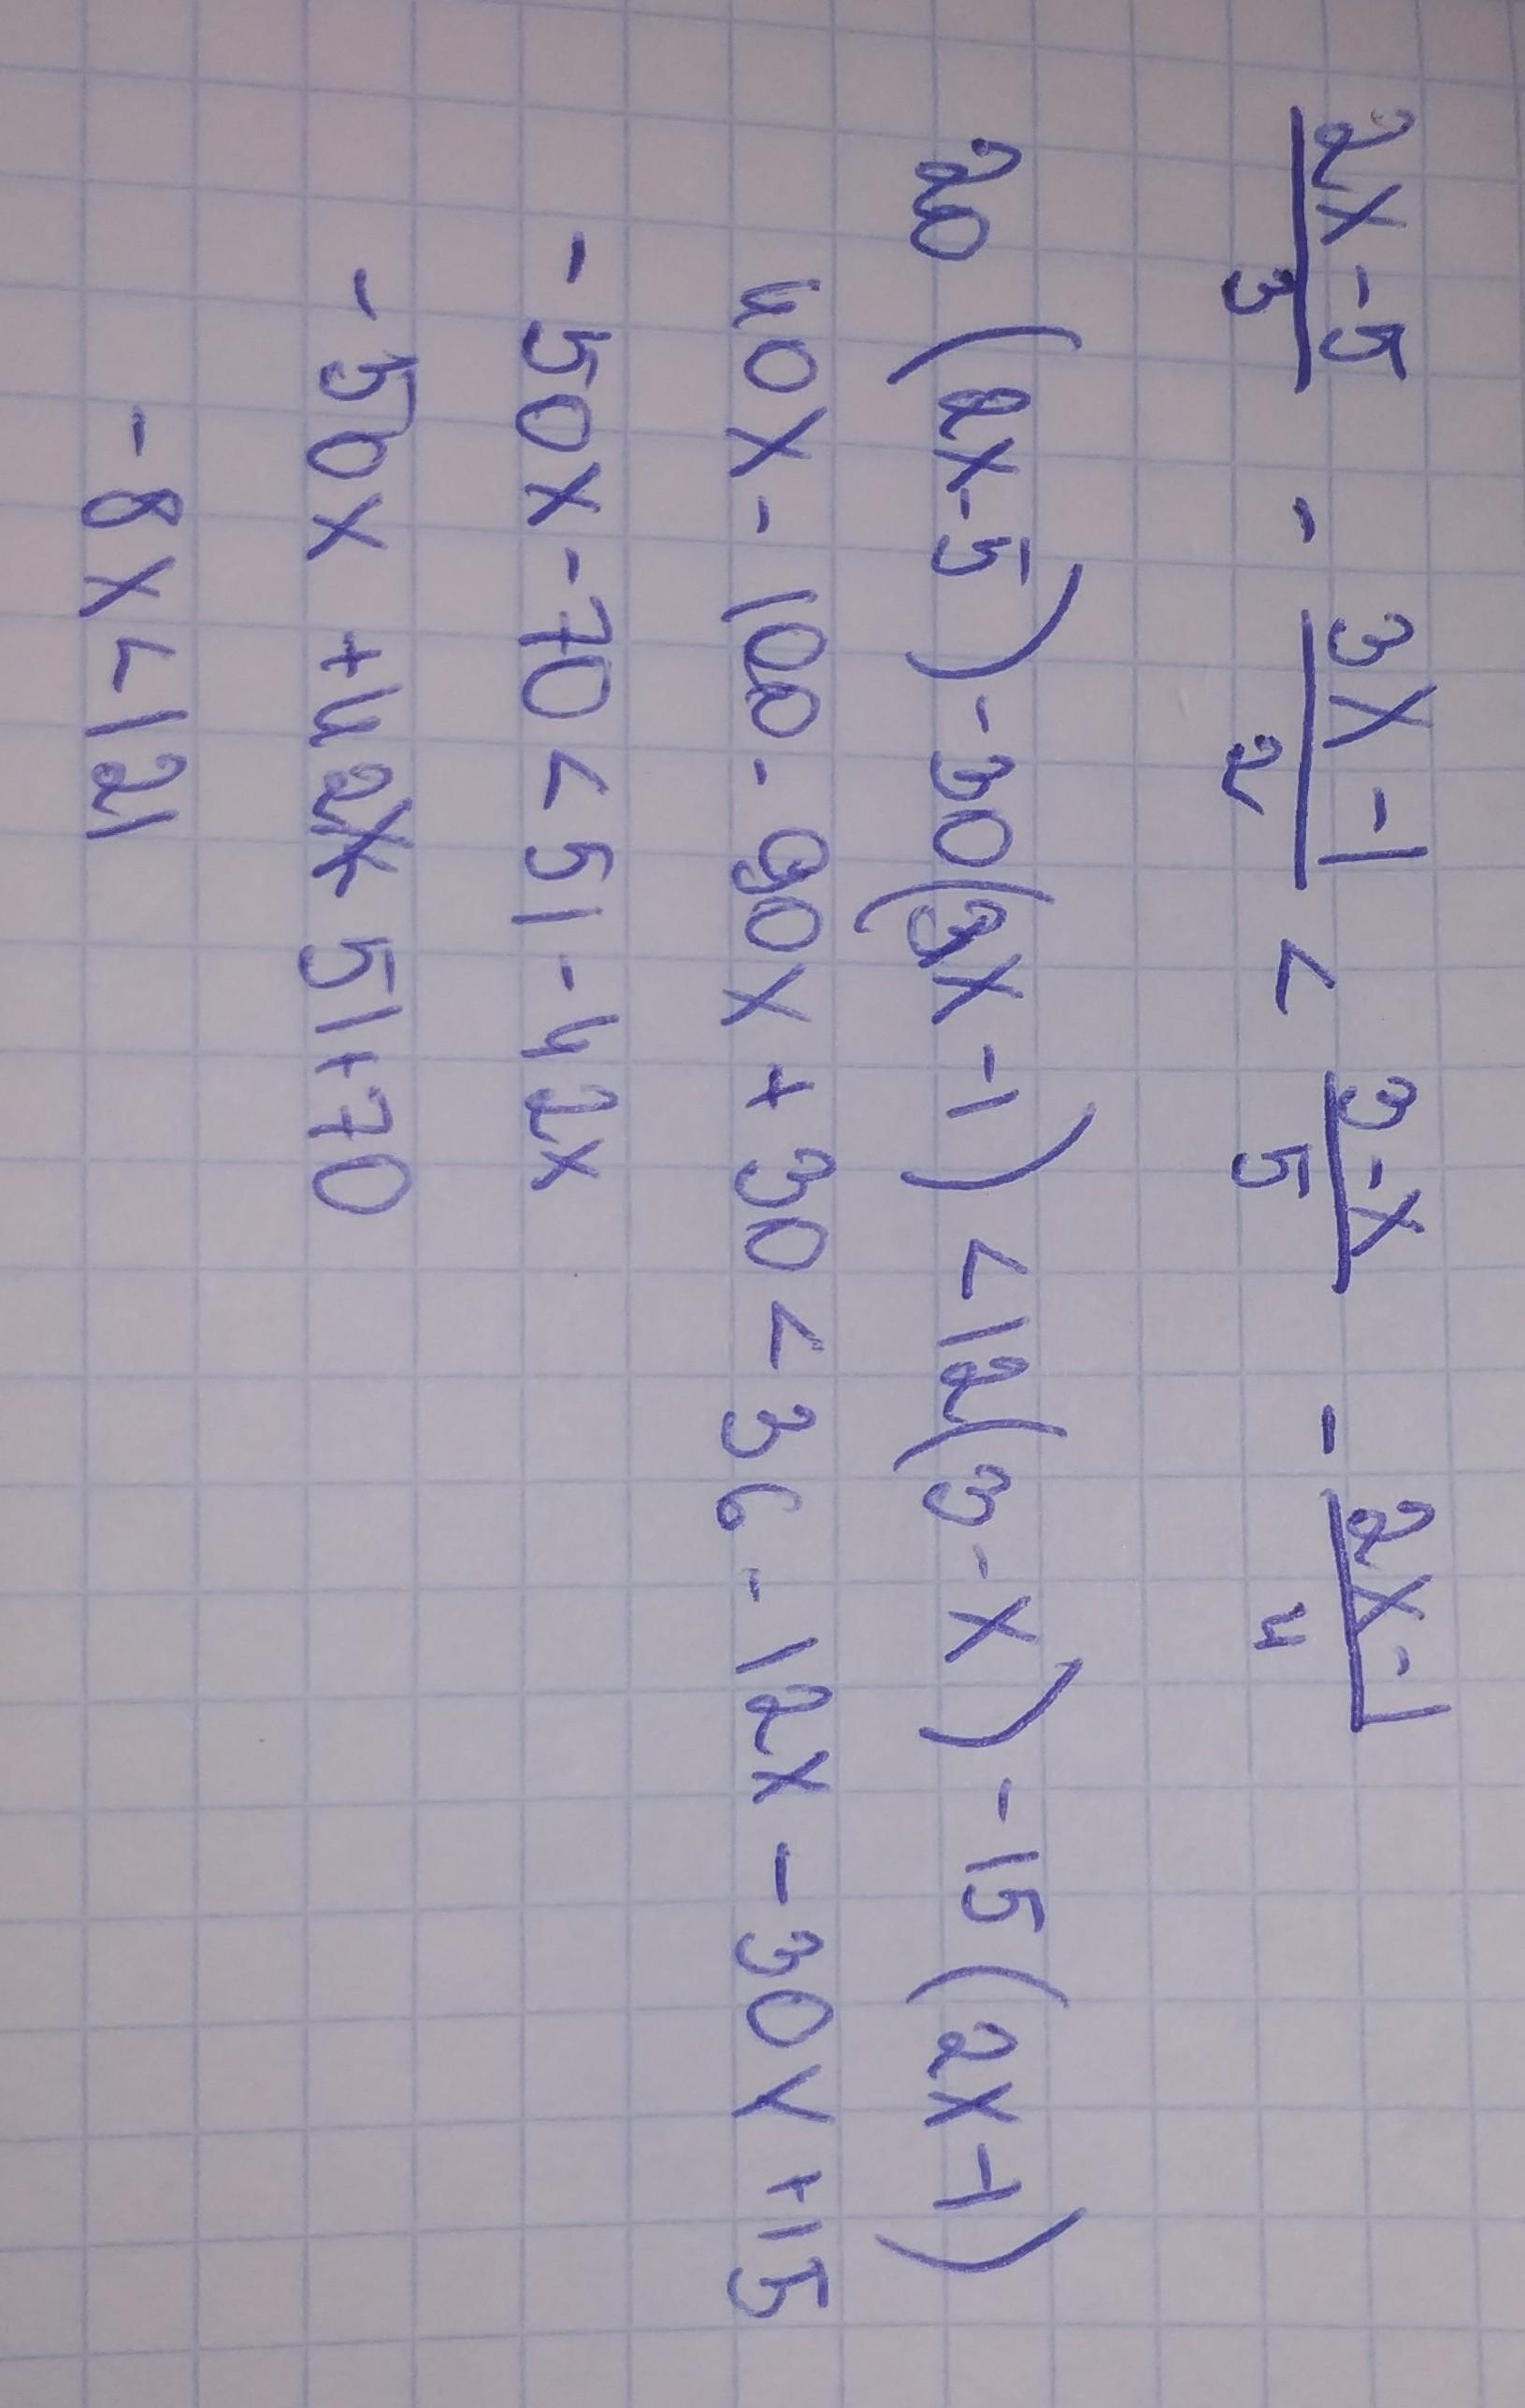 2x-5/3 - 3x-1/2 < 3-x/5 - 2x-1/4
20(2x-5)-30(3x-1)<12(3-x)-15(2x-1)
40x-100-90x+30<36-12x-30x+15
-50x-70<51-42x
-50x+42x<51+70
-8x<121